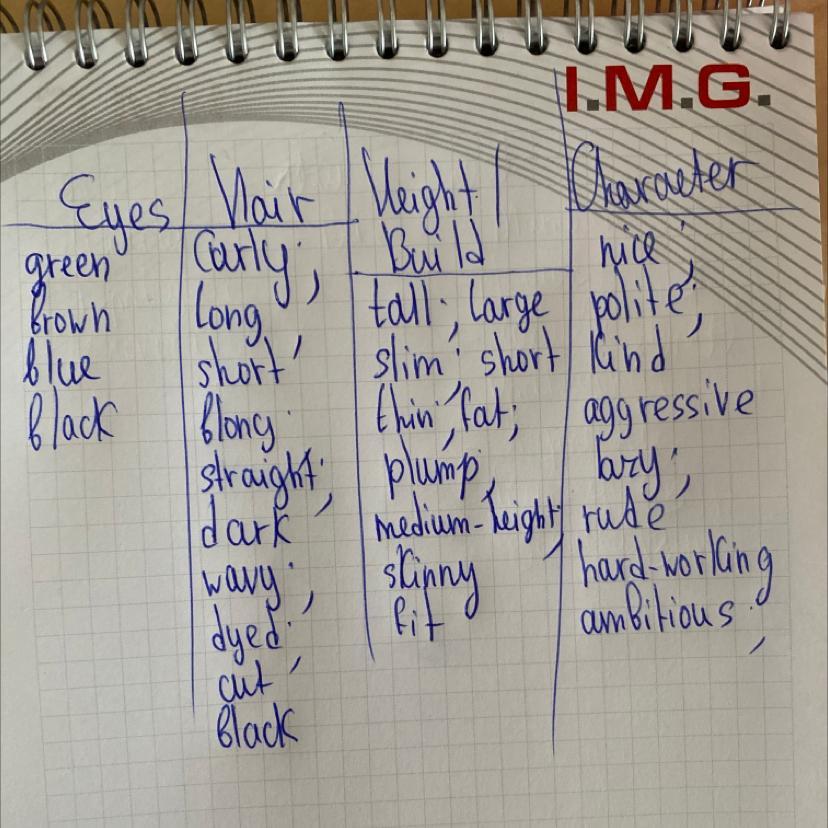 I.M.G.
Eyes
green
brown
blue
black
Hair
Curly;
long
short;
blong;
straight;
dark
wavy;
dyed;
cut
black
Height /
Build
tall; large
slim; short
thin; fat;
plump;
medium-height;
skinny
fit
Character
nice;
polite;
kind
aggressive
lazy;
rude
hard-working
ambitious;